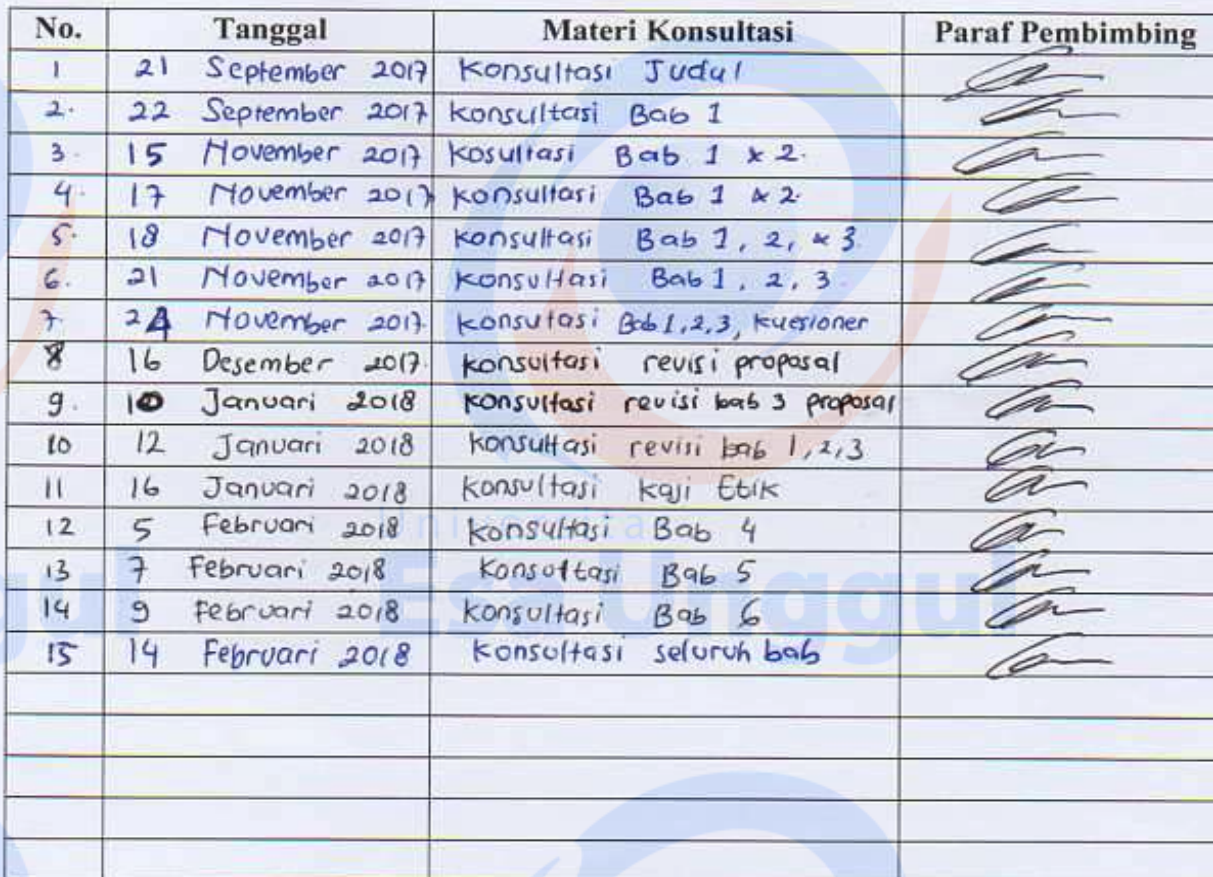 No. Tanggal Materi Konsultasi Paraf Pembimbing
1 21 September 2017 Konsultasi Judul
2. 22 September 2017 Konsultasi Bab 1
3. 15 November 2017 Kosultasi Bab 1 & 2.
4. 17 November 2017 Konsultasi Bab 1 & 2.
5. 18 November 2017 Konsultasi Bab 1, 2, & 3.
6. 21 November 2017 Konsultasi Bab 1, 2, 3.
7. 24 November 2017. Konsutasi Bab 1,2,3, kuesioner
8 16 Desember 2017. Konsultasi revisi proposal
9. 10 Januari 2018 Konsultasi revisi bab 3 proposal
10 12 Januari 2018 Konsultasi revisi bab 1,2,3
11 16 Januari 2018 Konsultasi Kaji Etik
12 5 Februari 2018 Konsultasi Bab 4
13 7 Februari 2018 Konsultasi Bab 5
14 9 Februari 2018 Konsultasi Bab 6
15 14 Februari 2018 Konsultasi seluruh bab
Universitas
Esa Unggul